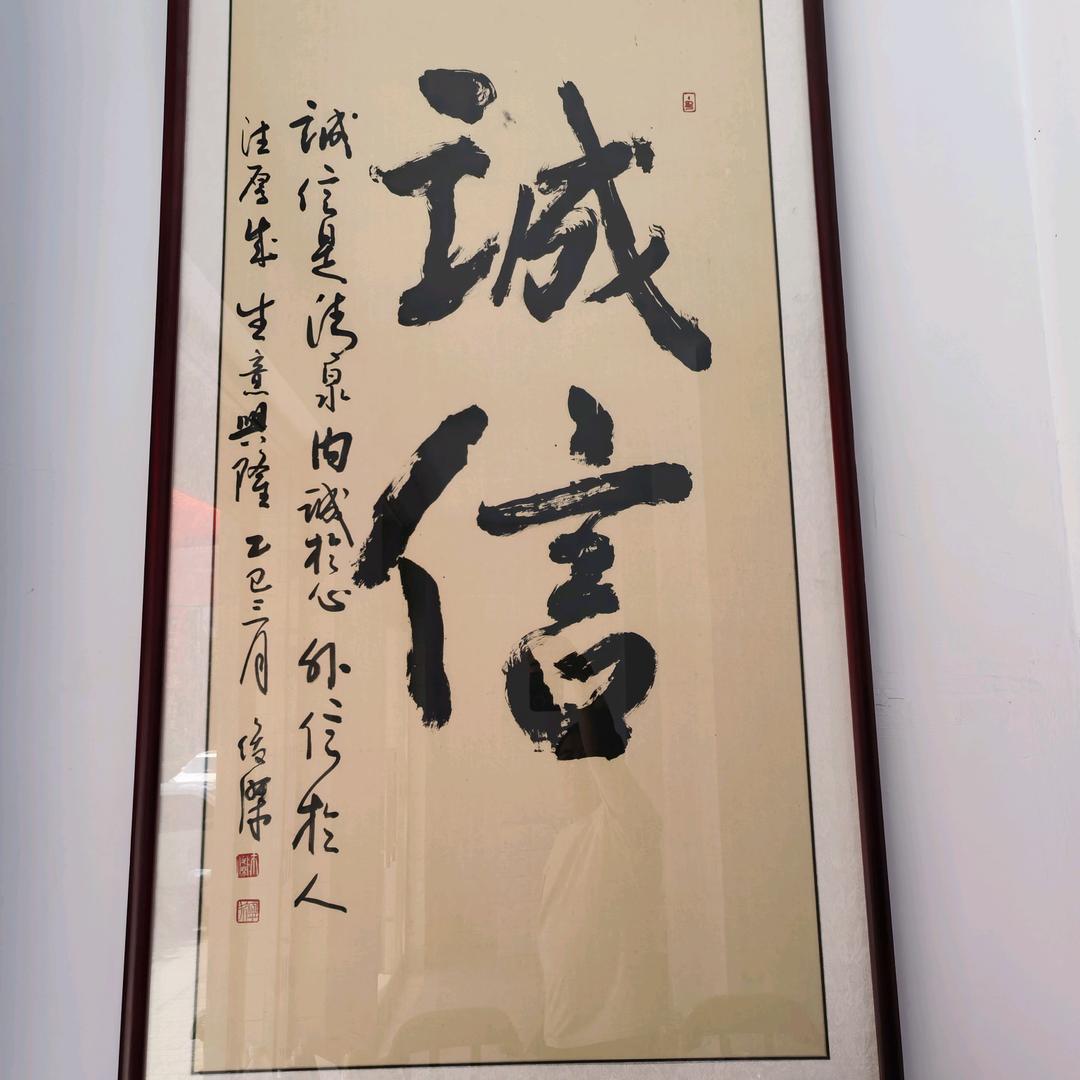 誠信
誠信是清泉 内誠於心 外信於人
生意興隆 乙巳三月 俊傑